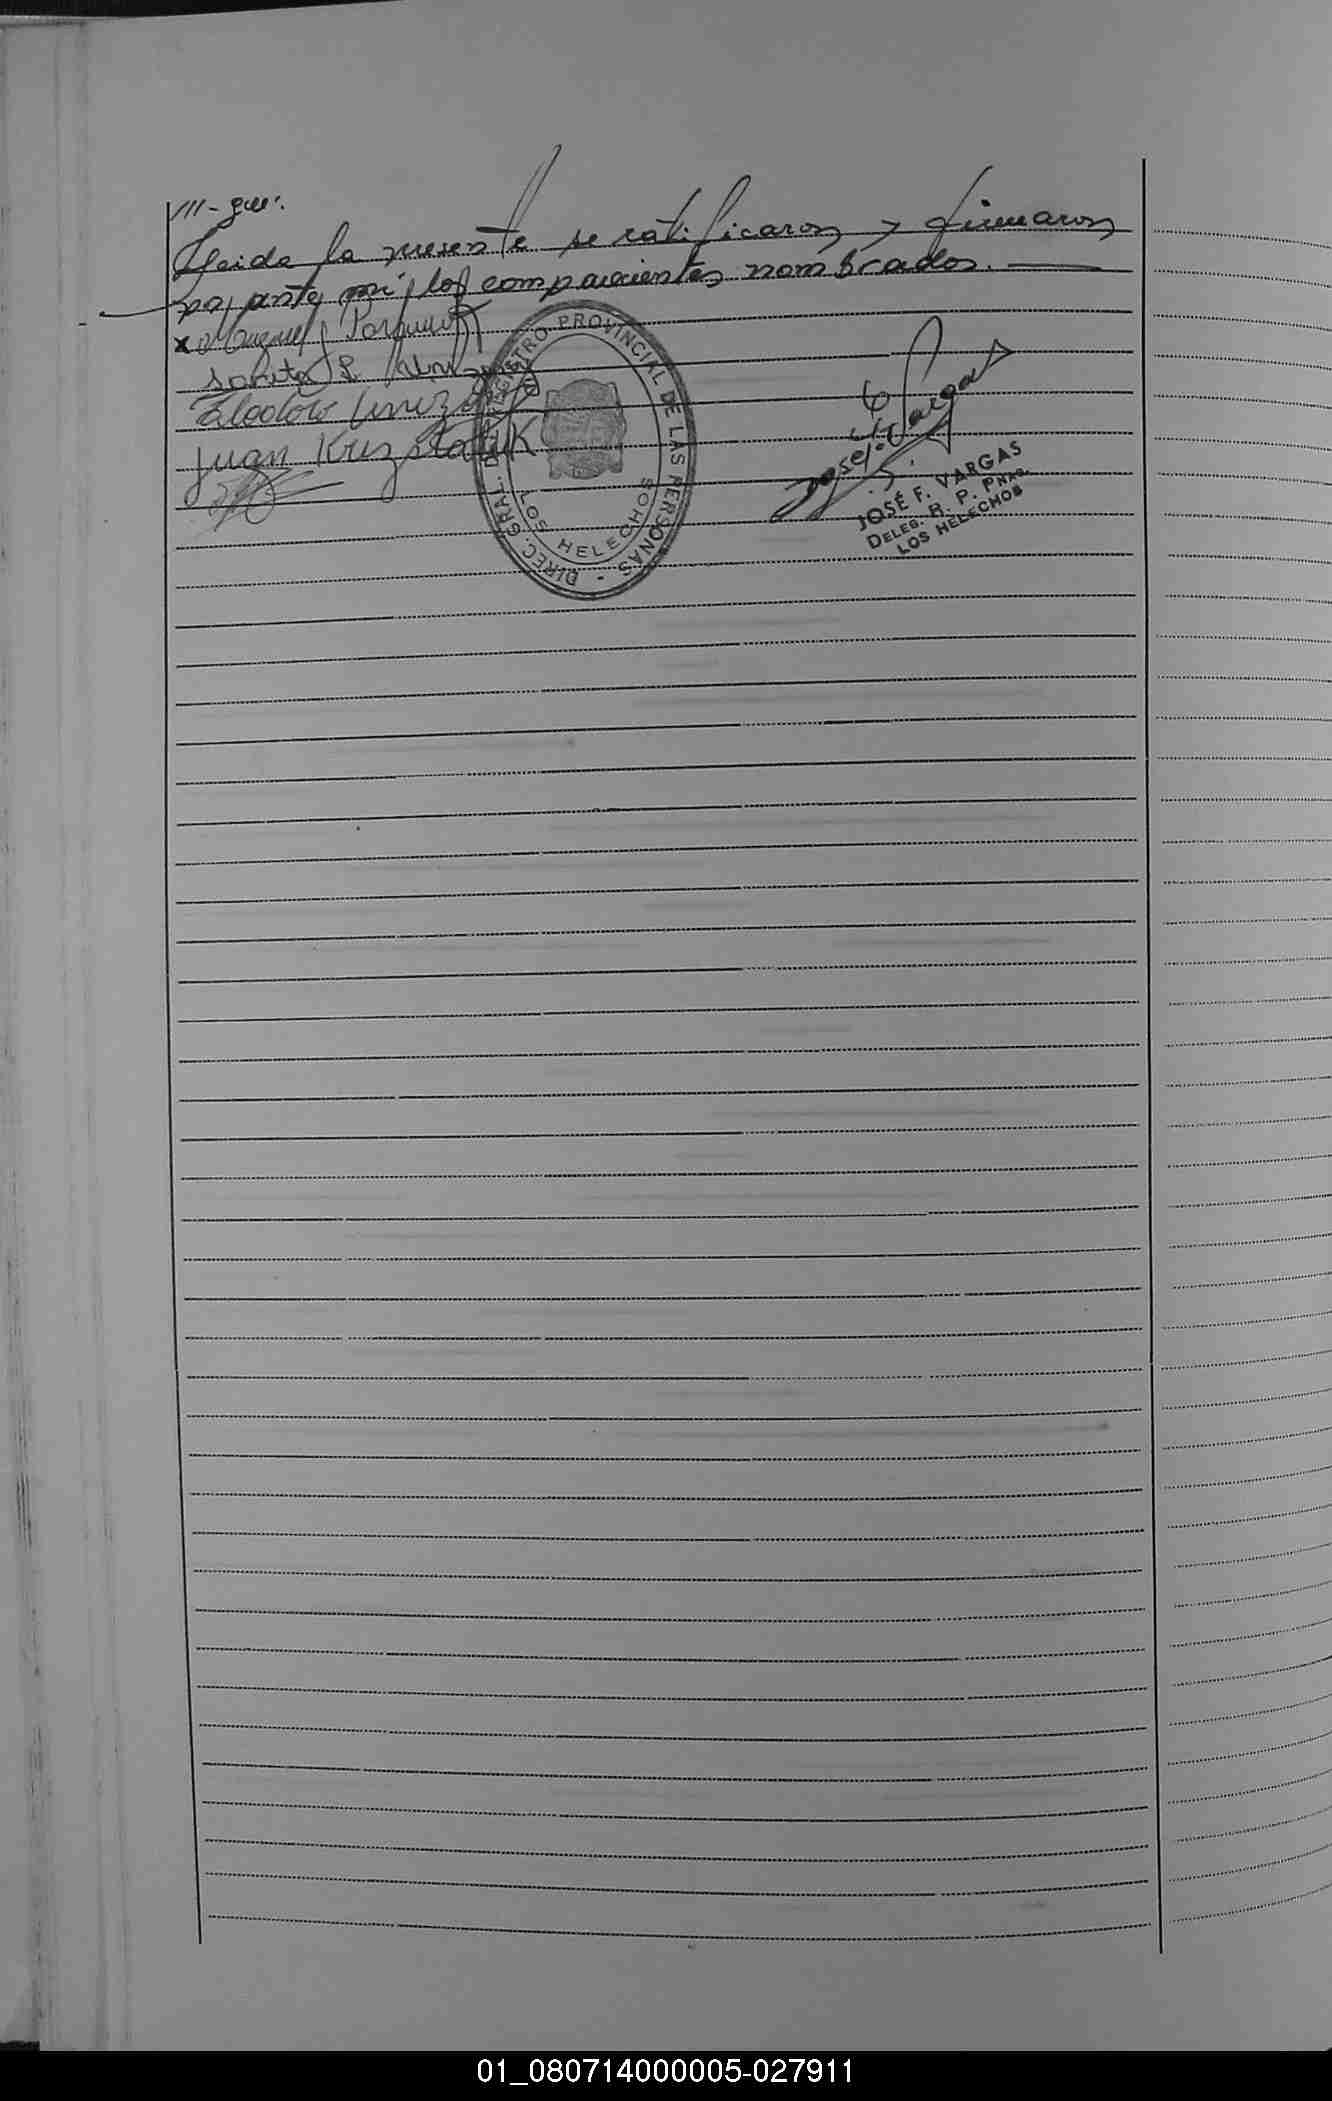 ///-gue:
Leida la presente se ratificaron y firmaron
por ante mi, los comparecientes nombrados.
x Miguel J
Sarita
Juan Krizstaluk
DIREC. GRAL. DEL REGISTRO PROVINCIAL DE LAS PERSONAS -
LOS HELECHOS
José F. Vargas
JOSÉ F. VARGAS
DELEG. R. P. PNAS.
LOS HELECHOS
01_080714000005-027911